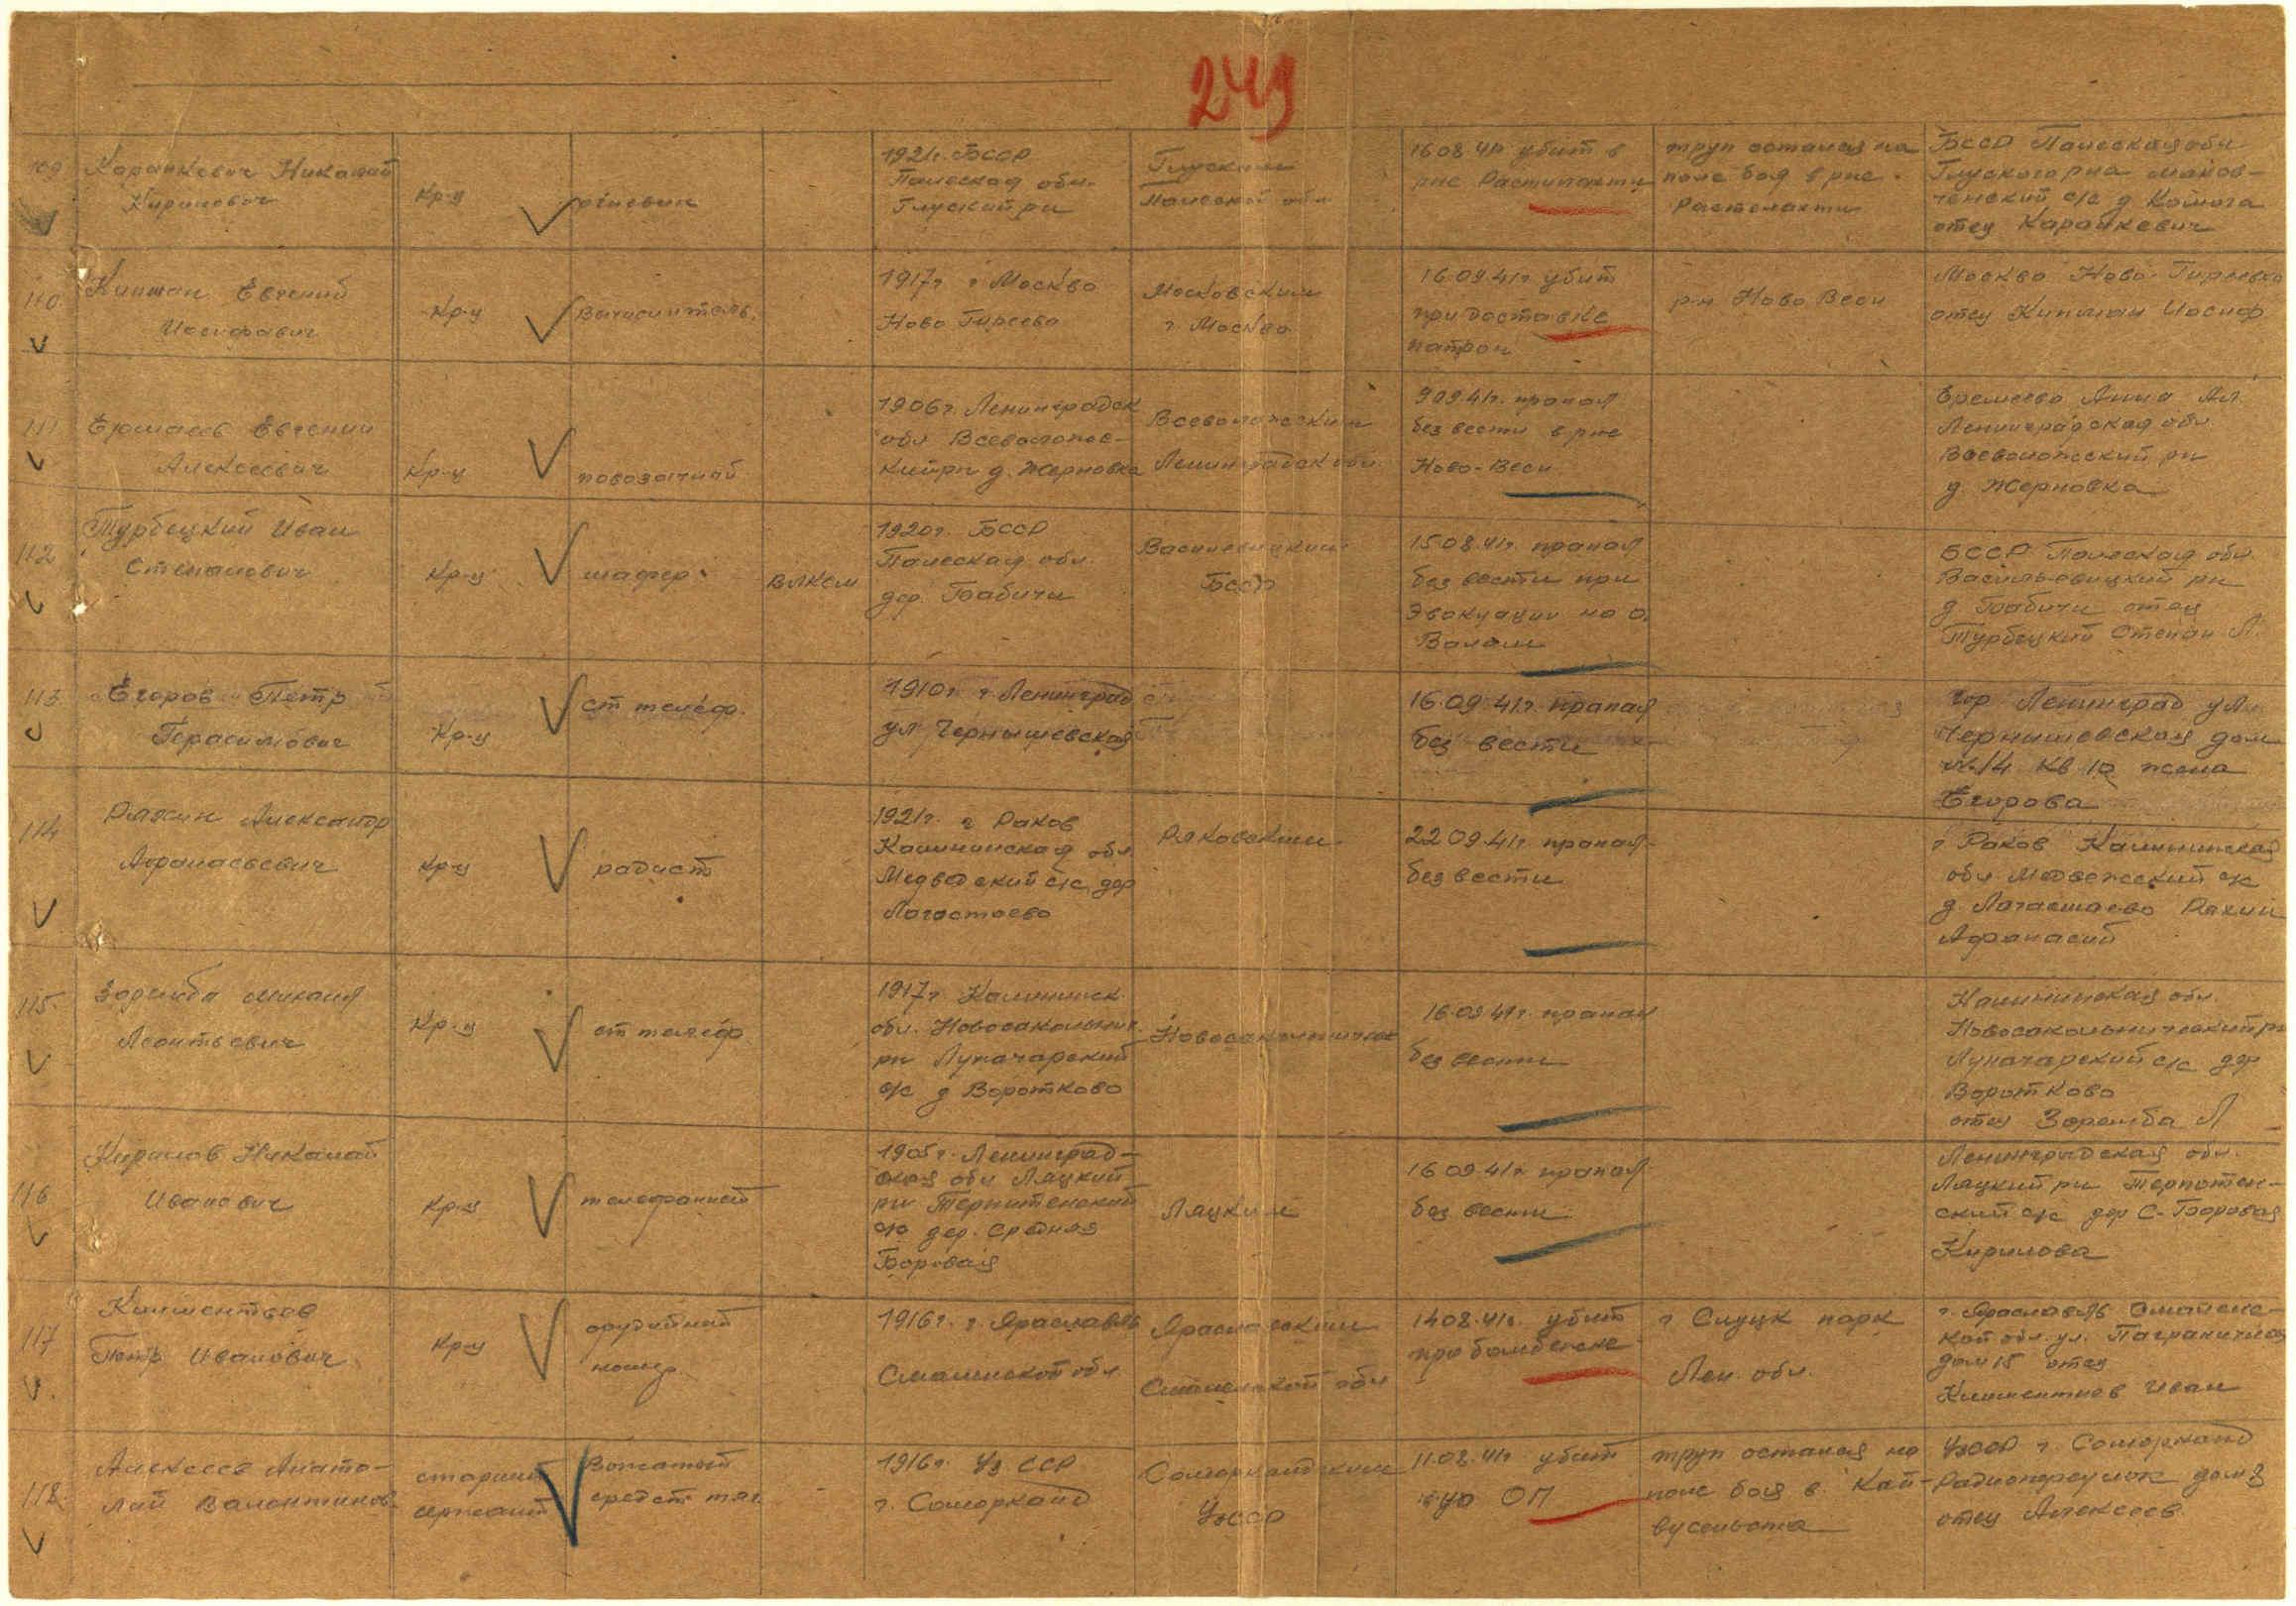 249
109
Каранкевич Николай
Кирилович
кр-ц
огневик
1921г. БССР
Полеская обл.
Глуский рн
Глуским
Полеской обл
16.08.41г. убит в
рне
труп остался на
поле боя в рне
БССР Полеская обл
Глуского рна
с/с д
отец Каранкевич
110
Кипман Евгений
Иосифович
Кр-ц
Вычислитель.
1917г г Москва
Ново Гиреево
Московским
г. Москва
16.09.41г убит
при доставке
патрон
р-н Ново Веси
Москва Ново-Гиреево
отец Кипман Иосиф
111
Евгений
Алексеевич
Кр-ц
повозочный
1906г. Ленинградск
обл Всеволожс-
кий рн д. Жерновка
Всеволожским
Ленинградск обл.
9.09.41г. пропал
без вести в рне
Ново-Веси
Еремеева Анна Ал.
Ленинградская обл.
Всеволожский рн
д. Жерновка
112
Турбецкий Иван
Степанович
Кр-ц
шофер
ВЛКСМ
1920г. БССР
Полеская обл.
дер. Бабичи
Василевицким
БССР
15.08.41г. пропал
без вести при
Эвокуации на о.
Валам
БССР Полеская обл
Васильевицкий рн
д Бабичи отец
Турбецкий Степан Л.
113
Егоров Петр
Герасимович
Кр-ц
ст телеф.
1910г. г Ленинград
ул Чернышевская
16.09.41г. пропал
без вести
гор Ленинград ул.
Чернышевская дом
№14 Кв 10 жена
Егорова
114
Ряхин Александр
Афонасьевич
кр-ц
радист
1921г. г Раков
Калининская обл
с/с дер
Ряковским
22.09.41г. пропал
без вести
г Раков Калининская
обл. Медвежеский с/с
д. Ряхин
Афонасий
115
Заремба Михаил
Леонтьевич
Кр-ц
ст телеф.
1917г. Калининск
обл. Новосокольнич.
рн Луначарский
с/с д Воротково
16.09.41г. пропал
без вести
Калининская обл.
Новосокольнический рн
Луначарский с/с дер
Воротково
отец Заремба Л
116
Кирилов Николай
Иванович
Кр-ц
телефонист
1905г. Ленинград-
ская обл Ляцкий
рн
с/с дер. Средняя
Боровая
Ляцким
16.09.41г. пропал
без вести
Ленинградская обл.
Ляцкий рн
ский с/с дер С-Боровая
Кирилова
117
Климентьев
Петр Иванович
Кр-ц
орудийный
номер
1916г. г. Ярославль
обл
14.08.41г. убит
при бомбежке
г Слуцк парк
Лен. обл.
г. Ярославль
кой обл. ул. Пограничная
дом 15 отец
Климентиев Иван
118
Алексеев Анато-
лий Валентинов.
старший
сержант
Вожатый
средст тяг.
1916г. Уз. ССР
г. Саморканд
Саморкандским
УзССР
11.08.41г. убит
ОП
труп остался на
поле боя в Кай-
вусельота
УзССР г. Саморканд
Радиопереулок дом 3
отец Алексеев